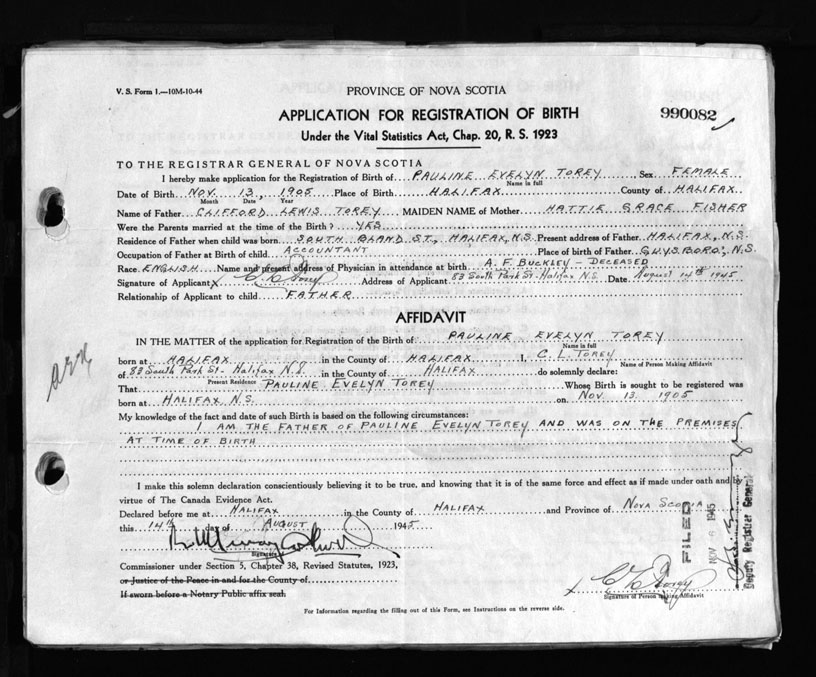 V. S. Form 1.—10M-10-44
PROVINCE OF NOVA SCOTIA
APPLICATION FOR REGISTRATION OF BIRTH
990082
Under the Vital Statistics Act, Chap. 20, R. S. 1923
TO THE REGISTRAR GENERAL OF NOVA SCOTIA
I hereby make application for the Registration of Birth of PAULINE EVELYN TOREY Sex FEMALE
Name in full
Date of Birth NOV. 13, 1905 Place of Birth HALIFAX County of HALIFAX
Month Date Year
Name of Father CLIFFORD LEWIS TOREY MAIDEN NAME of Mother HATTIE GRACE FISHER
Were the Parents married at the time of the Birth? YES
Residence of Father when child was born SOUTH BLAND ST., HALIFAX, N.S. Present address of Father HALIFAX, N.S.
Occupation of Father at Birth of child ACCOUNTANT Place of birth of Father GUYSBORO, N.S.
Race ENGLISH Name and present address of Physician in attendance at birth A. F. BUCKLEY - DECEASED
Signature of Applicant X C L Torey Address of Applicant 83 South Park St. Halifax N.S. Date August 14th 1945
Relationship of Applicant to child FATHER
AFFIDAVIT
IN THE MATTER of the application for Registration of the Birth of PAULINE EVELYN TOREY
Name in full
born at HALIFAX in the County of HALIFAX I, C. L. TOREY
Name of Person Making Affidavit
of 83 South Park St. Halifax N.S. in the County of HALIFAX do solemnly declare:
Present Residence
That PAULINE EVELYN TOREY Whose Birth is sought to be registered was
born at HALIFAX N.S. on NOV. 13 1905
My knowledge of the fact and date of such Birth is based on the following circumstances:
I AM THE FATHER OF PAULINE EVELYN TOREY AND WAS ON THE PREMISES
AT TIME OF BIRTH
I make this solemn declaration conscientiously believing it to be true, and knowing that it is of the same force and effect as if made under oath and by
virtue of The Canada Evidence Act.
Declared before me at HALIFAX in the County of HALIFAX and Province of NOVA SCOTIA
this 14th day of AUGUST 1945
Signature
Commissioner under Section 5, Chapter 38, Revised Statutes, 1923,
or Justice of the Peace in and for the County of
If sworn before a Notary Public affix seal.
X C L Torey
Signature of Person making Affidavit
FILED
NOV 6 1945
Deputy Registrar General
For Information regarding the filling out of this Form, see Instructions on the reverse side.